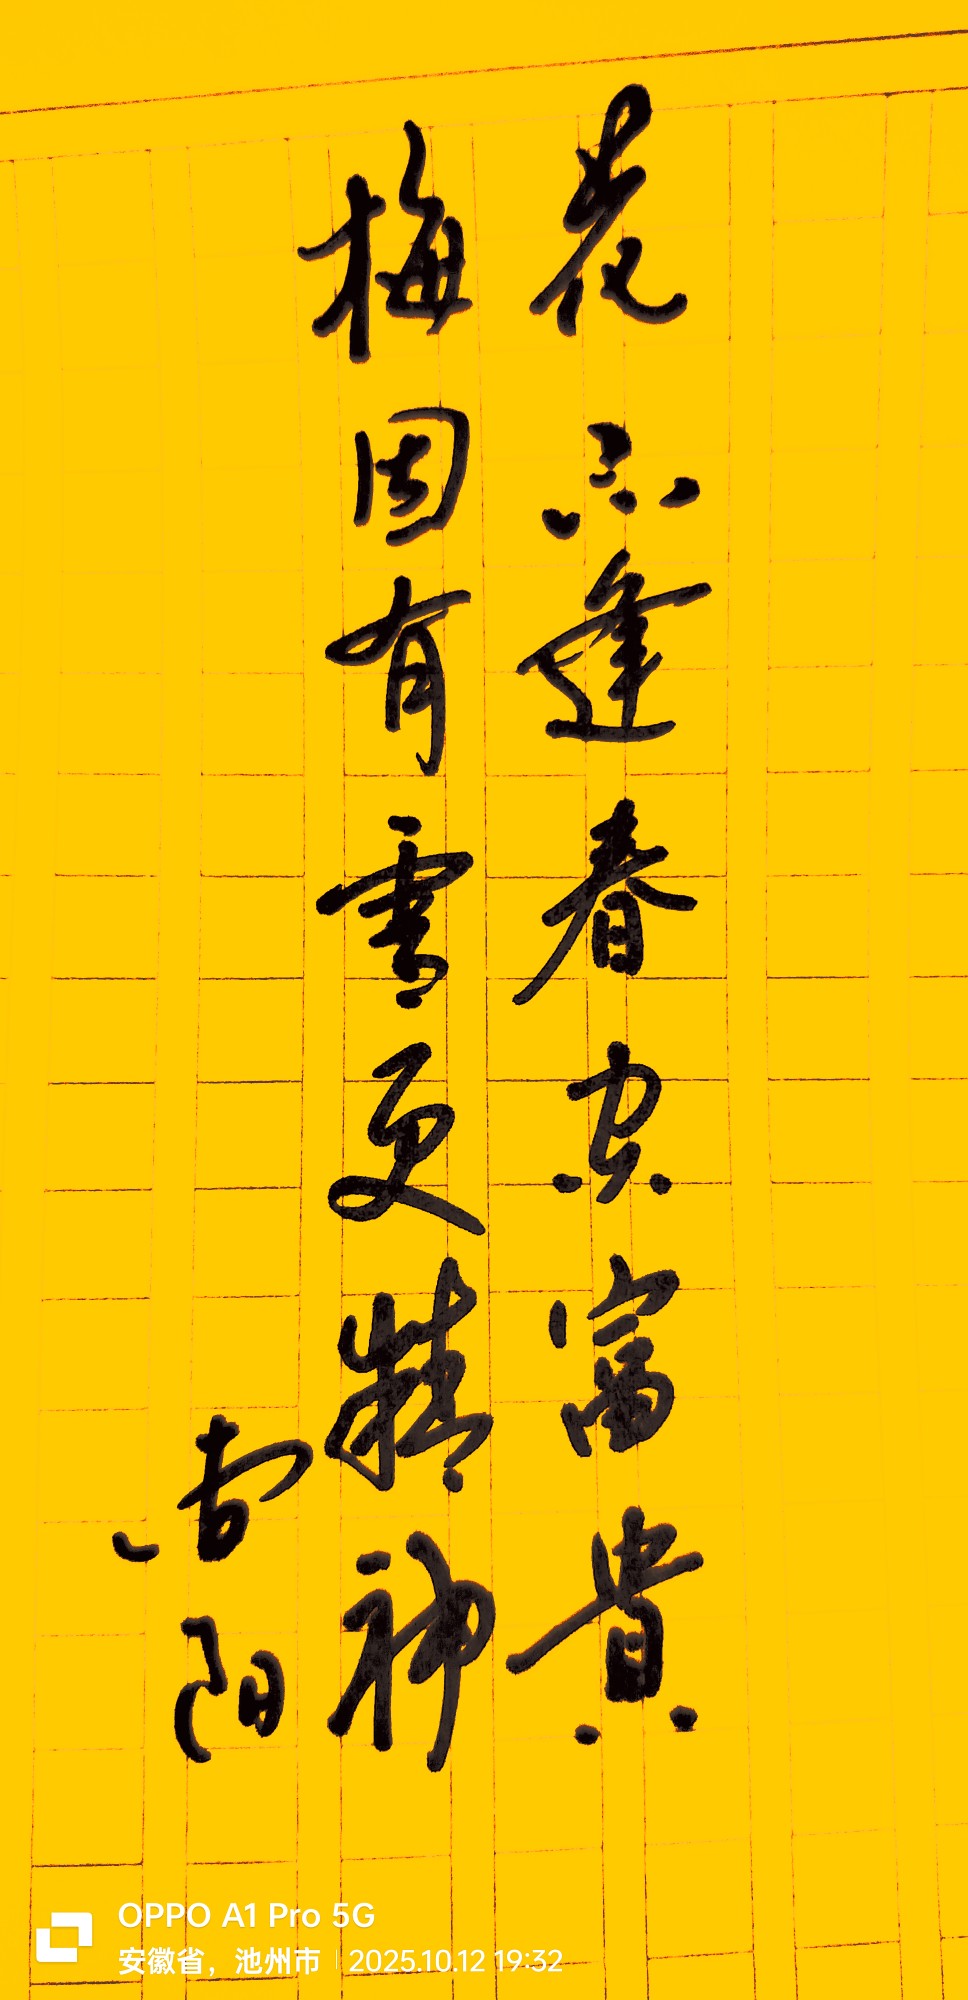 花不逢春富貴
梅因有雪更精神
阳
OPPO A1 Pro 5G
安徽省，池州市 | 2025.10.12 19:32